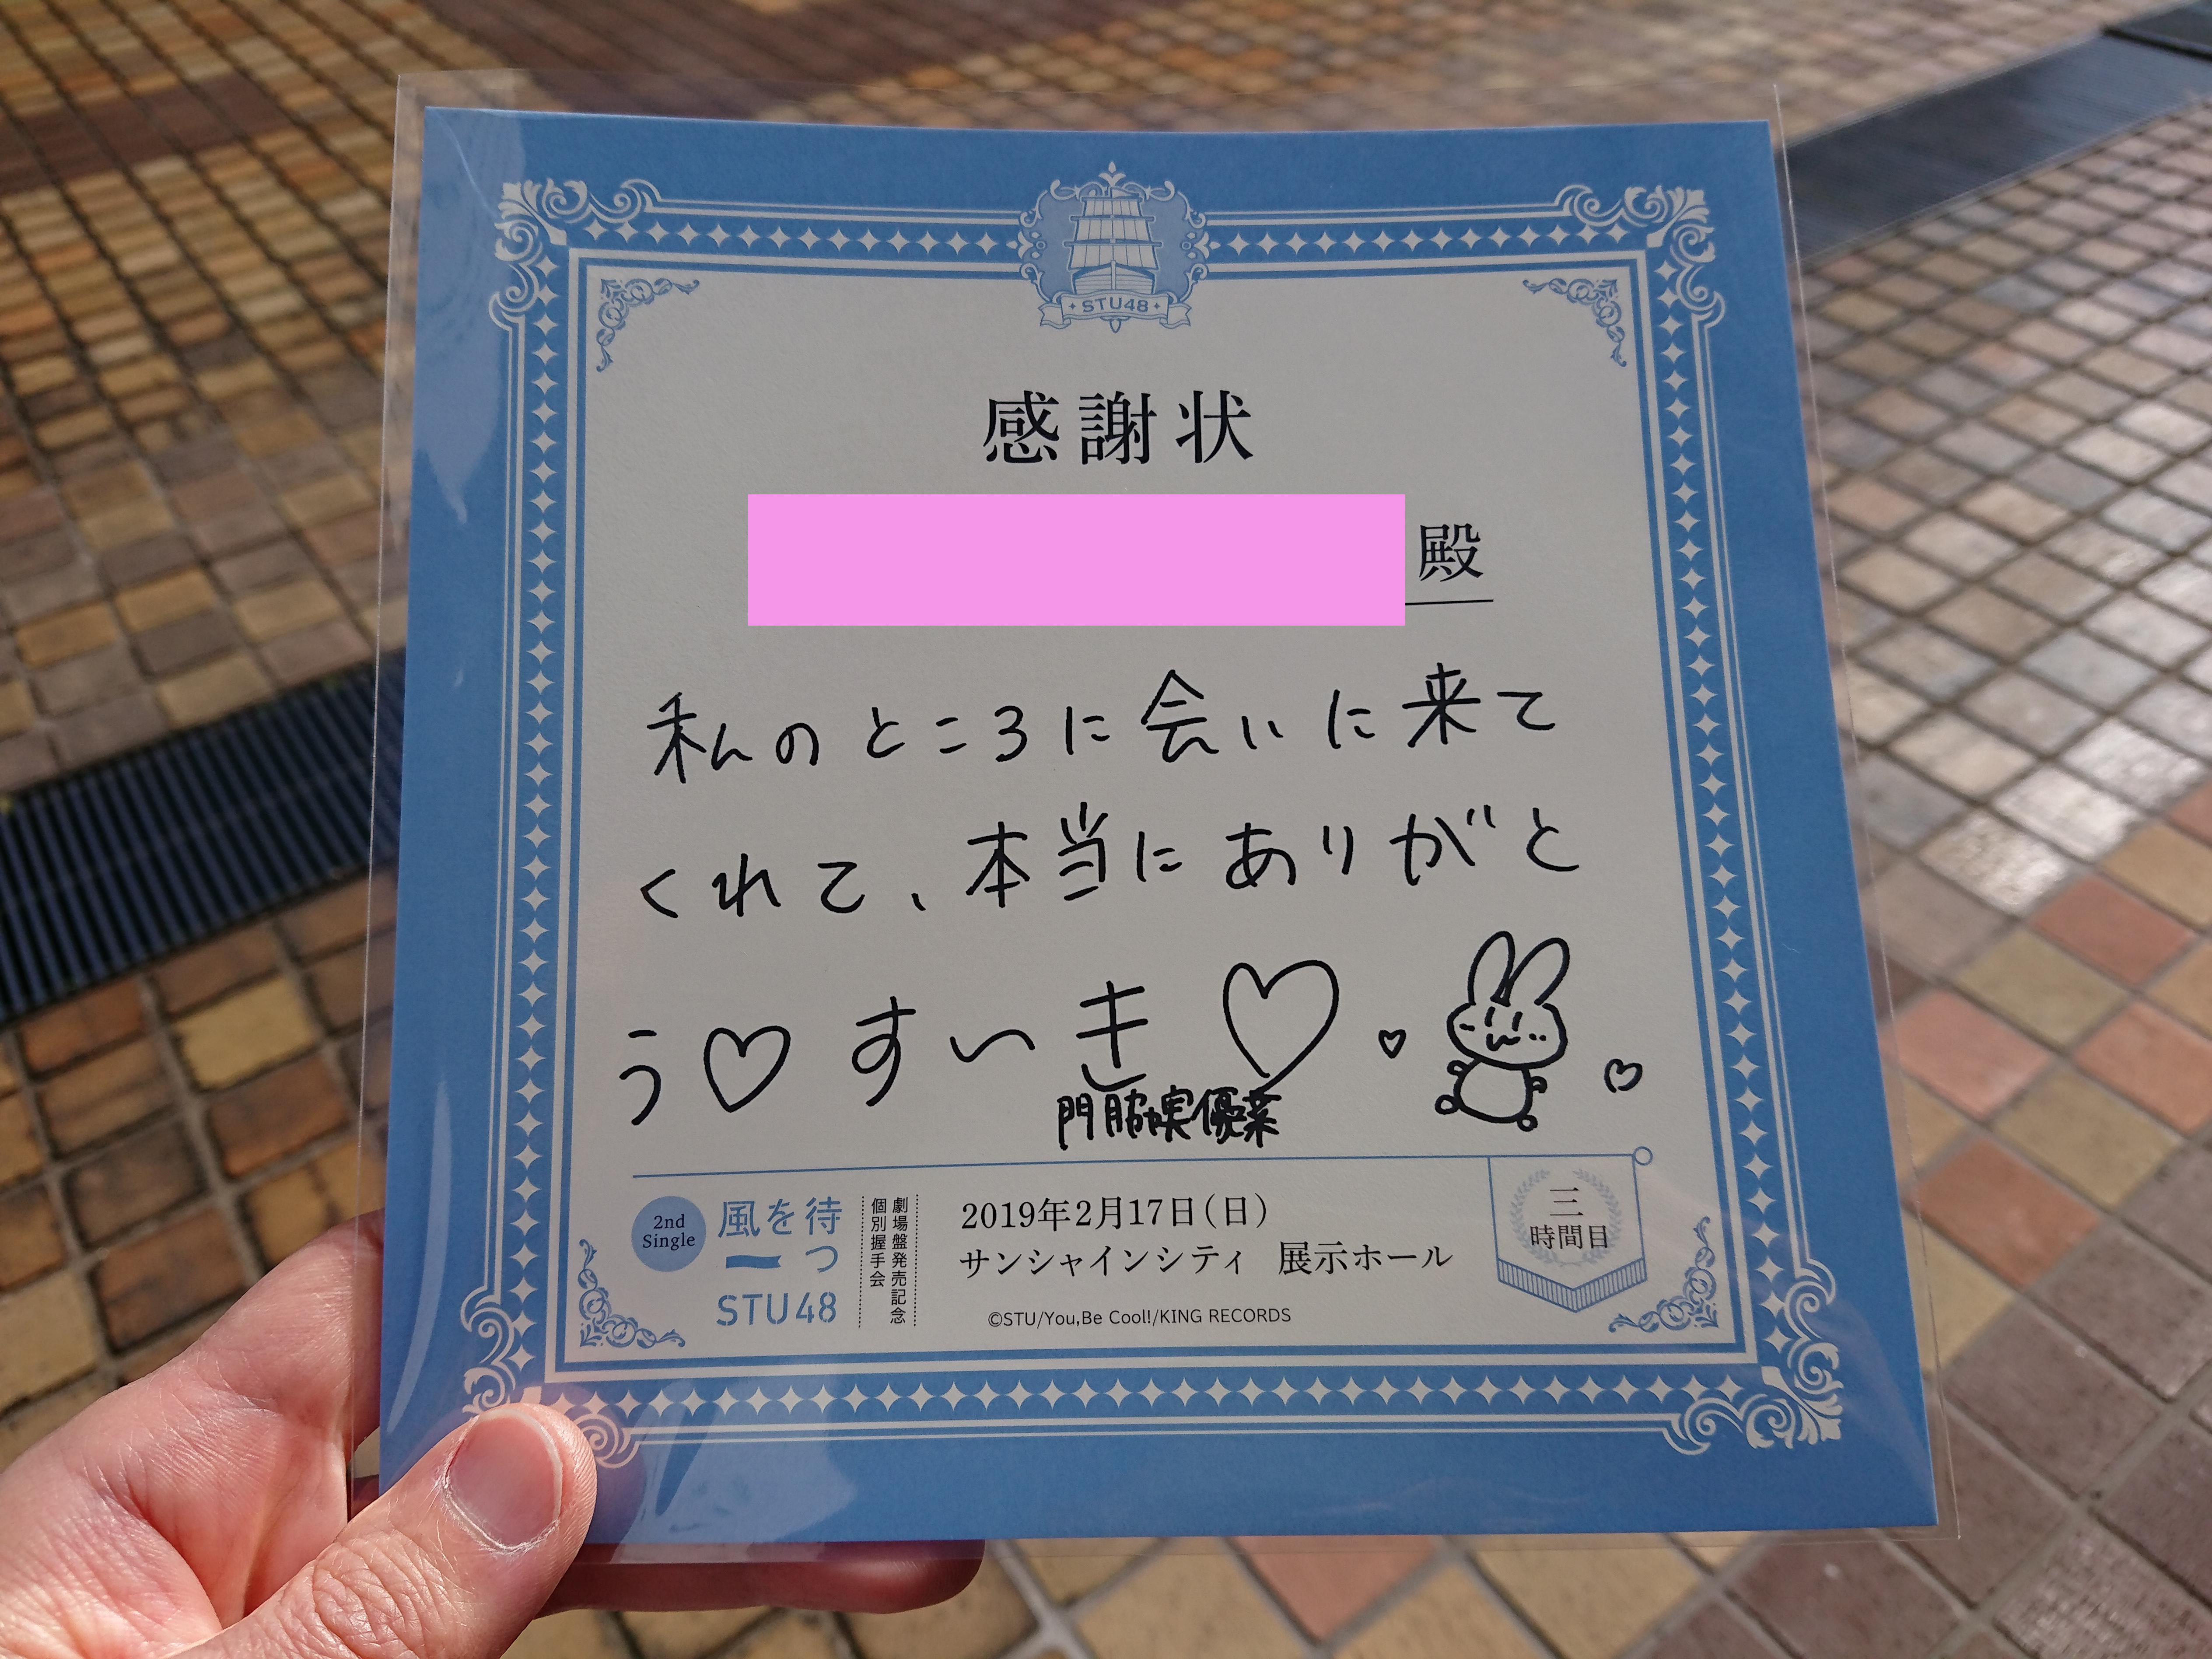 STU48
感謝状
殿
私のところに会いに来て
くれて、本当にありがと
う♡すいき♡
門脇実優菜
2nd Single
風を待つ
STU48
劇場盤発売記念
個別握手会
2019年2月17日(日)
サンシャインシティ 展示ホール
©STU/You,Be Cool!/KING RECORDS
三
時間目